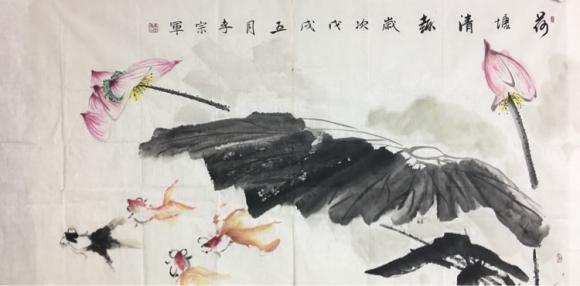 荷塘清趣歲次戊戌五月李宗軍